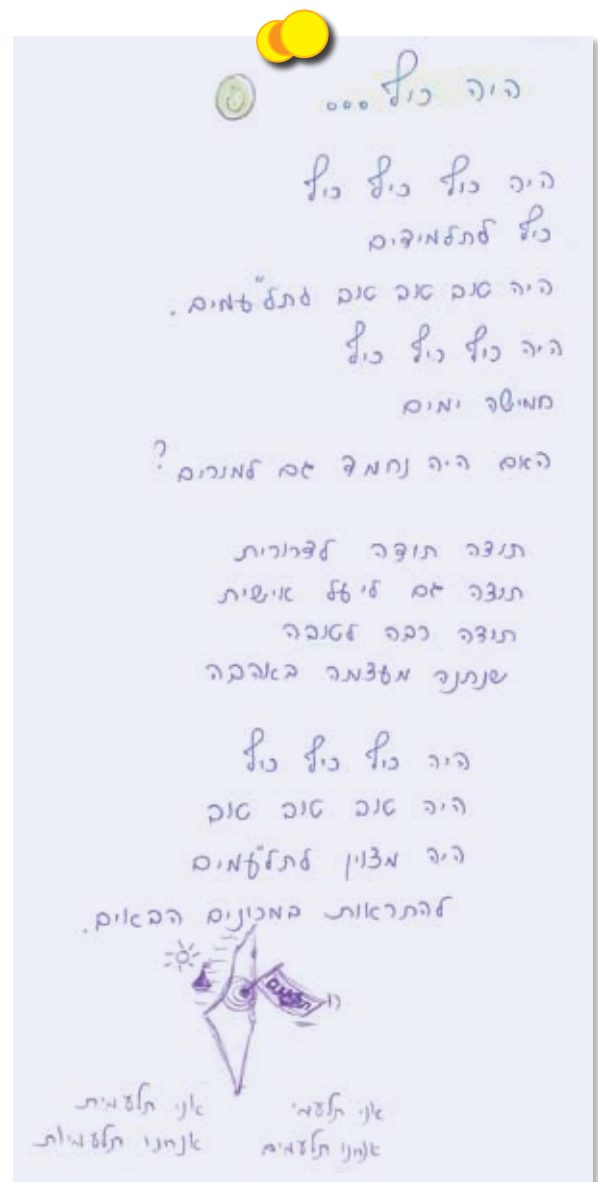 היה כיף...
היה כיף כיף כיף
כיף לתלמידים
היה טוב טוב טוב לתל"עמים.
היה כיף כיף כיף
חמישה ימים
האם היה נחמד גם למורים?
תודה תודה לדרורית
תודה גם ליעל אישית
תודה רבה לטובה
שנתנה מעצמה באהבה
היה כיף כיף כיף
היה טוב טוב טוב
היה מצוין לתל"עמים
להתראות במכונים הבאים.
אני תלעמי אני תלעמית
אנחנו תלעמים אנחנו תלעמיות